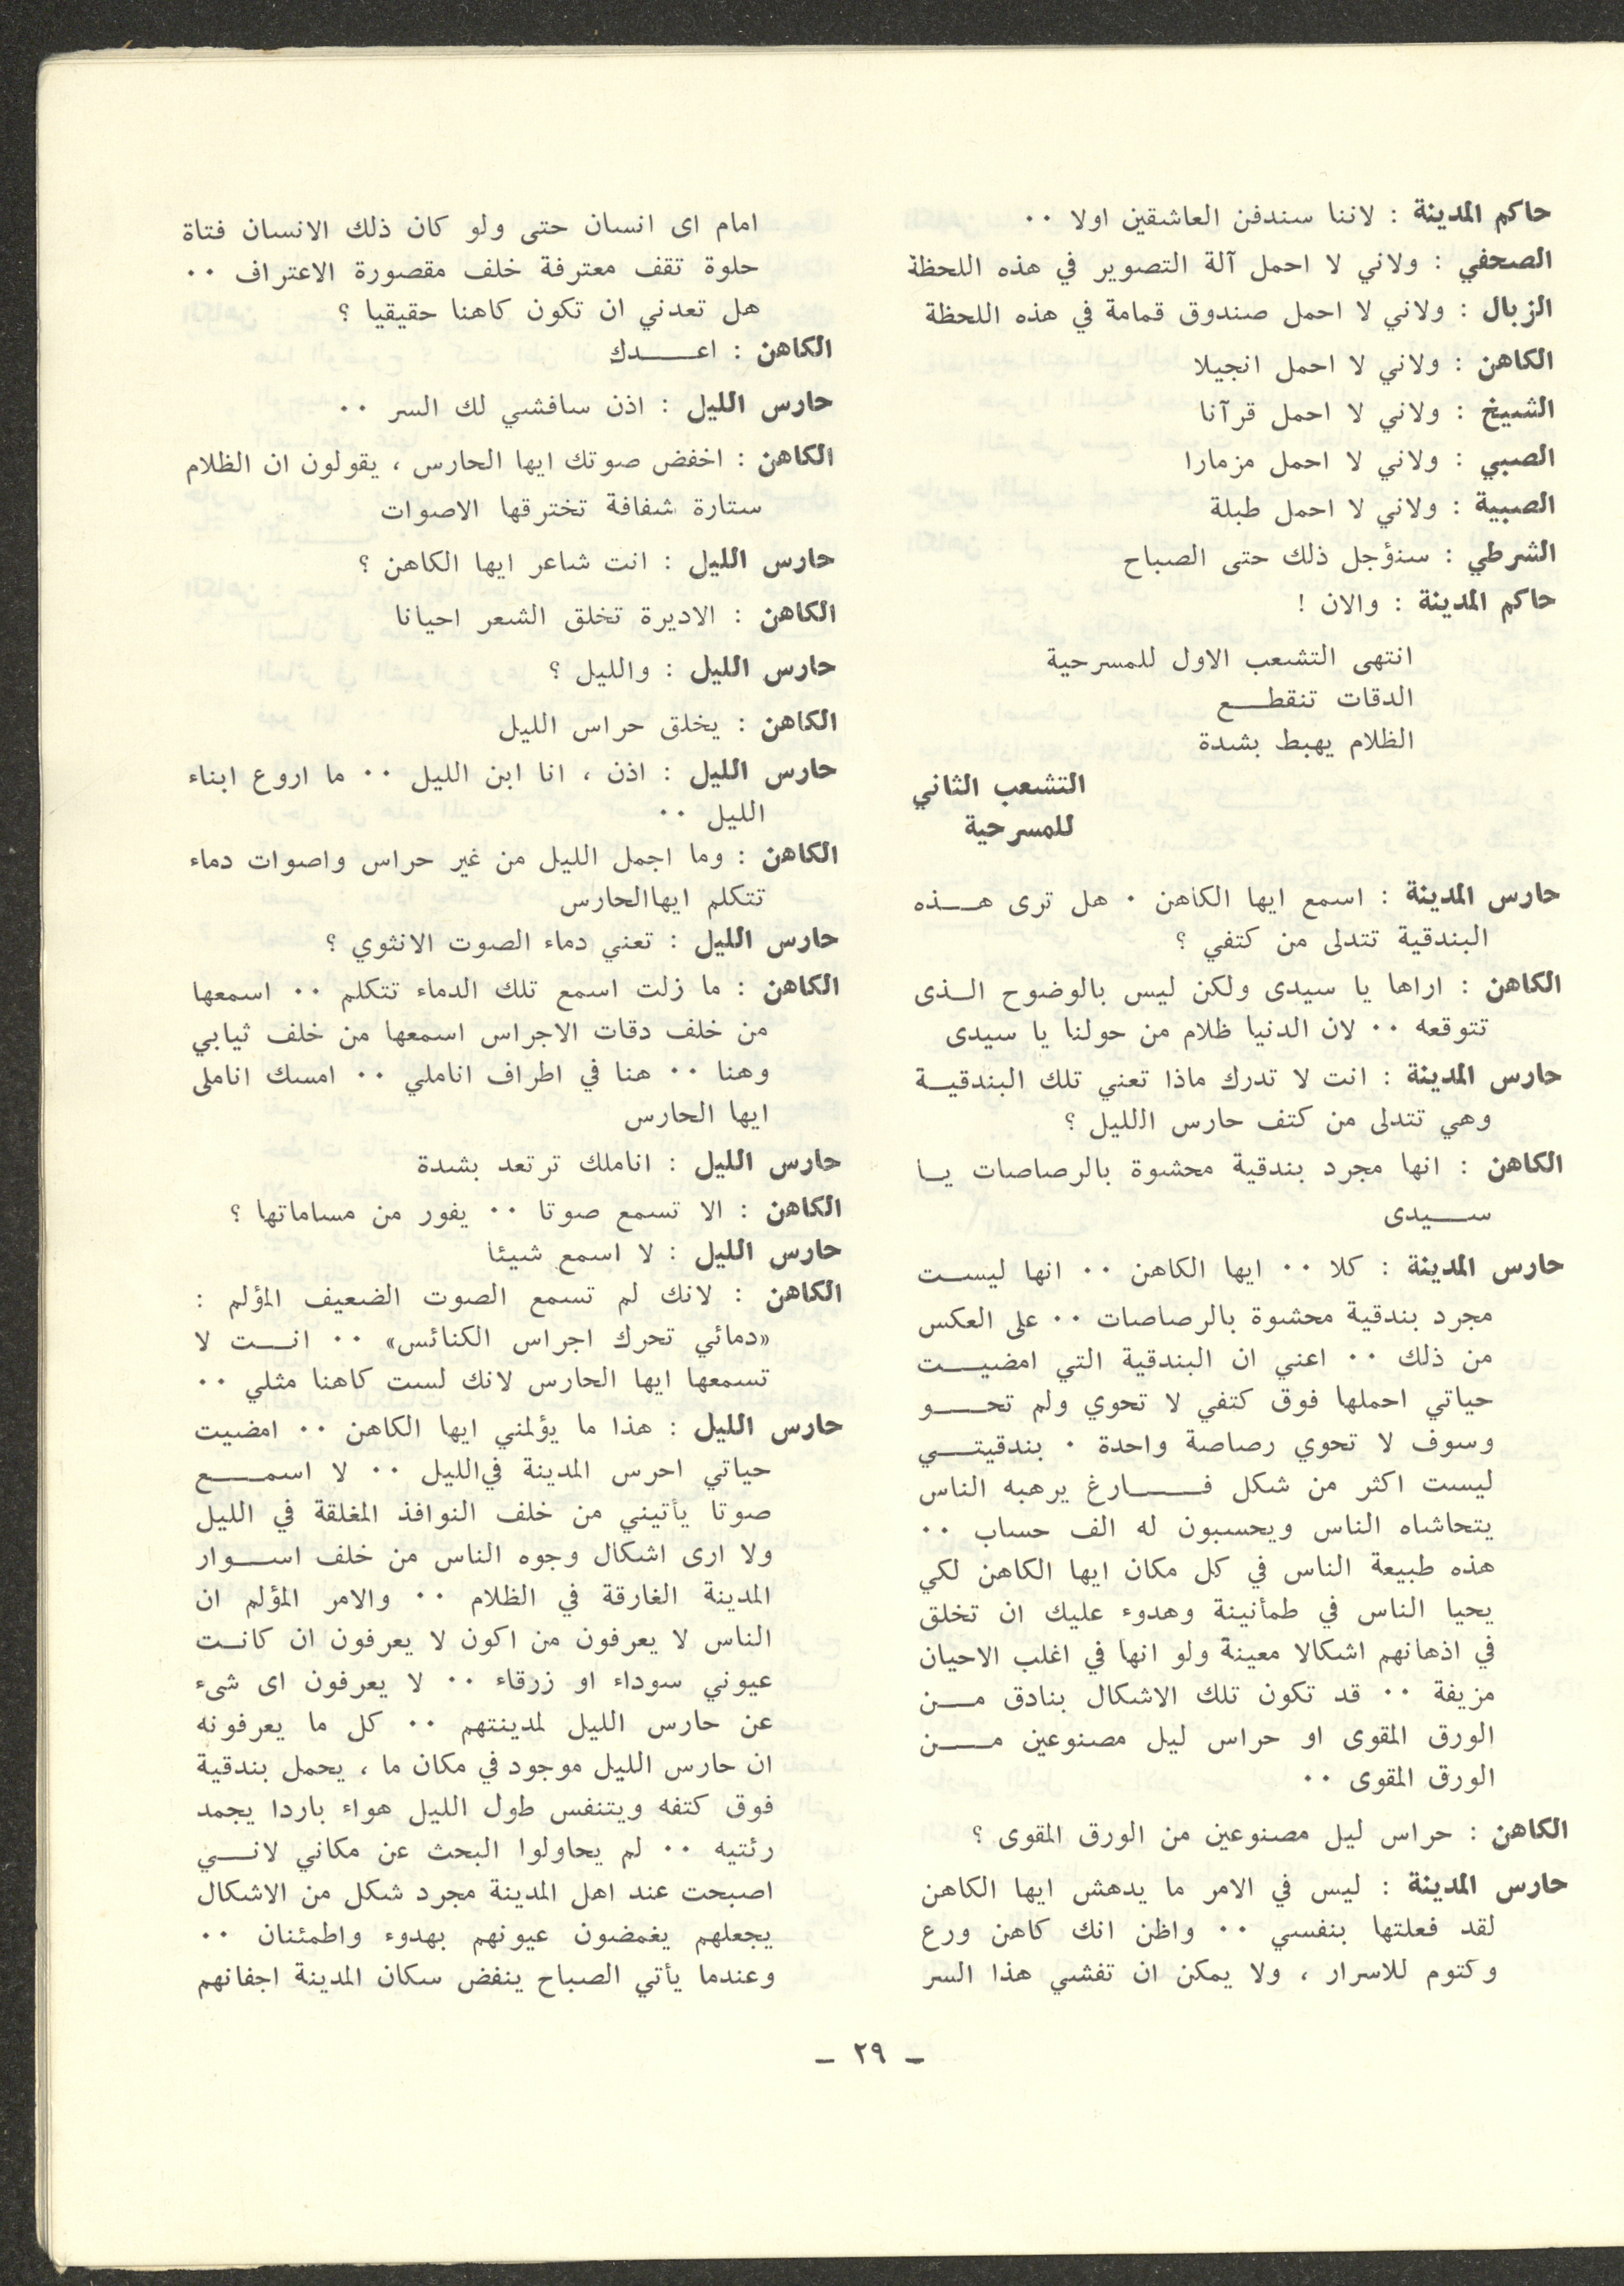 حاكم المدينة : لاننا سندفن العاشقين اولا ٠٠
الصحفي : ولاني لا احمل آلة التصوير في هذه اللحظة
الزبال : ولاني لا احمل صندوق قمامة في هذه اللحظة
الكاهن : ولاني لا احمل انجيلا
الشيخ : ولاني لا احمل قرآنا
الصبي : ولاني لا احمل مزمارا
الصبية : ولاني لا احمل طبلة
الشرطي : سنؤجل ذلك حتى الصباح
حاكم المدينة : والان !
انتهى التشعب الاول للمسرحية
الدقات تنقطـــع
الظلام يهبط بشدة
التشعب الثاني
للمسرحية
حارس المدينة : اسمع ايها الكاهن ٠ هل ترى هـــذه
البندقية تتدلى من كتفي ؟
الكاهن : اراها يا سيدى ولكن ليس بالوضوح الـذى
تتوقعه ٠٠ لان الدنيا ظلام من حولنا يا سيدى
حارس المدينة : انت لا تدرك ماذا تعني تلك البندقيـة
وهي تتدلى من كتف حارس الليل ؟
الكاهن : انها مجرد بندقية محشوة بالرصاصات يـا
ســـيدى
حارس المدينة : كلا ٠٠ ايها الكاهن ٠٠ انها ليسـت
مجرد بندقية محشوة بالرصاصات ٠٠ على العكس
من ذلك ٠٠ اعني ان البندقية التي امضيـــت
حياتي احملها فوق كتفي لا تحوي ولم تحـــو
وسوف لا تحوي رصاصة واحدة ٠ بندقيتـــي
ليست اكثر من شكل فـــــارغ يرهبه الناس
يتحاشاه الناس ويحسبون له الف حساب ٠٠
هذه طبيعة الناس في كل مكان ايها الكاهن لكي
يحيا الناس في طمأنينة وهدوء عليك ان تخلق
في اذهانهم اشكالا معينة ولو انها في اغلب الاحيان
مزيفة ٠٠ قد تكون تلك الاشكال بنادق مـــن
الورق المقوى او حراس ليل مصنوعين مـــن
الورق المقوى ٠٠
الكاهن : حراس ليل مصنوعين من الورق المقوى ؟
حارس المدينة : ليس في الامر ما يدهش ايها الكاهن
لقد فعلتها بنفسي ٠٠ واظن انك كاهن ورع
وكتوم للاسرار ، ولا يمكن ان تفشي هذا السر
امام اى انسان حتى ولو كان ذلك الانسان فتاة
حلوة تقف معترفة خلف مقصورة الاعتراف ٠٠
هل تعدني ان تكون كاهنا حقيقيا ؟
الكاهن : اعـــــدك
حارس الليل : اذن سافشي لك السر ٠٠
الكاهن : اخفض صوتك ايها الحارس ، يقولون ان الظلام
ستارة شفافة تخترقها الاصوات
حارس الليل : انت شاعر ايها الكاهن ؟
الكاهن : الاديرة تخلق الشعر احيانا
حارس الليل : والليل ؟
الكاهن : يخلق حراس الليل
حارس الليل : اذن ، انا ابن الليل ٠٠ ما اروع ابناء
الليل ٠٠
الكاهن : وما اجمل الليل من غير حراس واصوات دماء
تتكلم ايهاالحارس
حارس الليل : تعني دماء الصوت الانثوي ؟
الكاهن : ما زلت اسمع تلك الدماء تتكلم ٠٠ اسمعها
من خلف دقات الاجراس اسمعها من خلف ثيابي
وهنا ٠٠ هنا في اطراف اناملي ٠٠ امسك اناملى
ايها الحارس
حارس الليل : اناملك ترتعد بشدة
الكاهن : الا تسمع صوتا ٠٠ يفور من مساماتها ؟
حارس الليل : لا اسمع شيئا
الكاهن : لانك لم تسمع الصوت الضعيف المؤلم :
«دمائي تحرك اجراس الكنائس» ٠٠ انـــت لا
تسمعها ايها الحارس لانك لست كاهنا مثلي ٠٠
حارس الليل : هذا ما يؤلمني ايها الكاهن ٠٠ امضيت
حياتي احرس المدينة في‌الليل ٠٠ لا اسمـــع
صوتا يأتيني من خلف النوافذ المغلقة في الليل
ولا ارى اشكال وجوه الناس من خلف اســـوار
المدينة الغارقة في الظلام ٠٠ والامر المؤلم ان
الناس لا يعرفون من اكون لا يعرفون ان كانـت
عيوني سوداء او زرقاء ٠٠ لا يعرفون اى شىء
عن حارس الليل لمدينتهم ٠٠ كل ما يعرفونه
ان حارس الليل موجود في مكان ما ، يحمل بندقية
فوق كتفه ويتنفس طول الليل هواء باردا يجمد
رئتيه ٠٠ لم يحاولوا البحث عن مكاني لانـــي
اصبحت عند اهل المدينة مجرد شكل من الاشكال
يجعلهم يغمضون عيونهم بهدوء واطمئنان ٠٠
وعندما يأتي الصباح ينفض سكان المدينة اجفانهم
ـ ٢٩ ـ